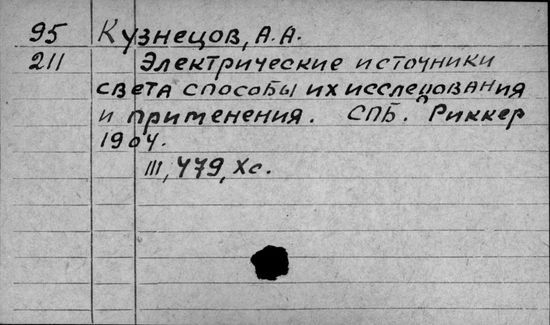 95 Кузнецов, А.А.
211 Электрические источники
света способы их исследования
и применения. СПБ. Риккер
1904.
III, 479, Xc.